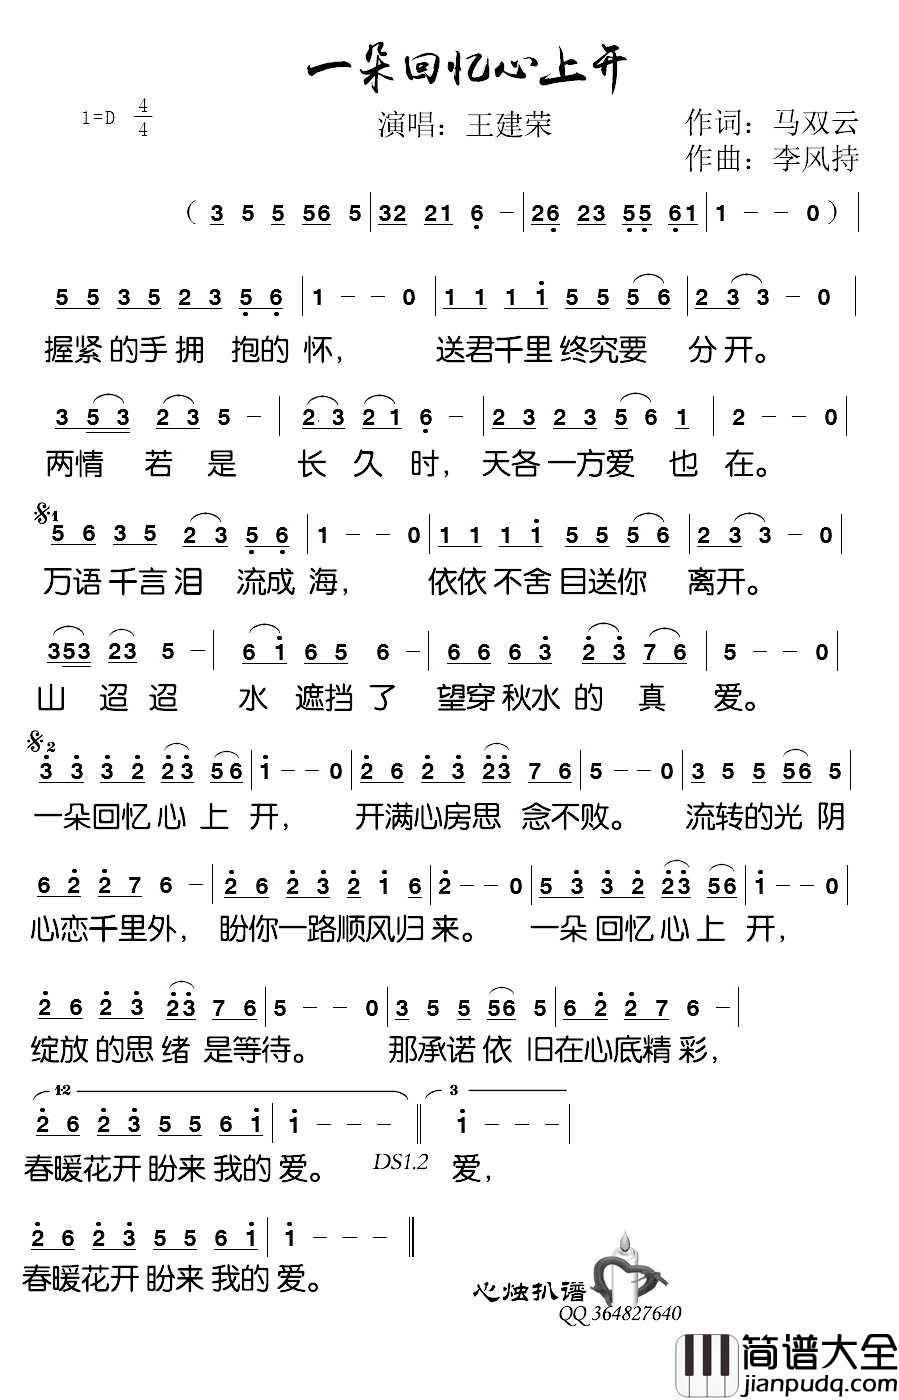 一朵回忆心上开
1=D 4/4
演唱：王建荣
作词：马双云
作曲：李风持
（3 5 5 56 5|32 21 6 -|26 23 55 61|1 - - 0）|
5 5 3 5 2 3 5 6|1 - - 0|1 1 1 1 5 5 5 6|2 3 3 - 0|
握紧的手拥 抱的 怀， 送君千里终究要 分开。
3 5 3 2 3 5 -|2 3 2 1 6 -|2 3 2 3 5 6 1|2 - - 0|
两情 若 是 长 久 时， 天各一方爱 也 在。
𝄋1
5 6 3 5 2 3 5 6|1 - - 0|1 1 1 1 5 5 5 6|2 3 3 - 0|
万语千言泪 流成 海， 依依不舍目送你 离开。
353 23 5 -|6 1 6 5 6 -|6 6 6 3 2 3 7 6|5 - - 0|
山 迢 迢 水 遮挡 了 望穿秋水 的 真 爱。
𝄋2
3 3 3 2 23 56|1 - - 0|2 6 2 3 23 7 6|5 - - 0|3 5 5 56 5|
一朵回忆 心 上 开， 开满心房思 念不败。 流转的光 阴
6 2 2 7 6 -|2 6 2 3 2 1 6|2 - - 0|5 3 3 2 23 56|1 - - 0|
心恋千里外， 盼你一路顺风归 来。 一朵 回忆 心 上 开，
2 6 2 3 23 7 6|5 - - 0|3 5 5 56 5|6 2 2 7 6 -|
绽放 的思 绪 是等待。 那承诺 依 旧在心底精 彩，
12 3
2 6 2 3 5 5 6 1|1 - - -‖1 - - -|
春暖花开 盼来 我的 爱。 DS1.2 爱，
2 6 2 3 5 5 6 1|1 - - -‖
春暖花开 盼来 我的 爱。
心烛扒谱
QQ 364827640
简谱大全
jianpudq.com